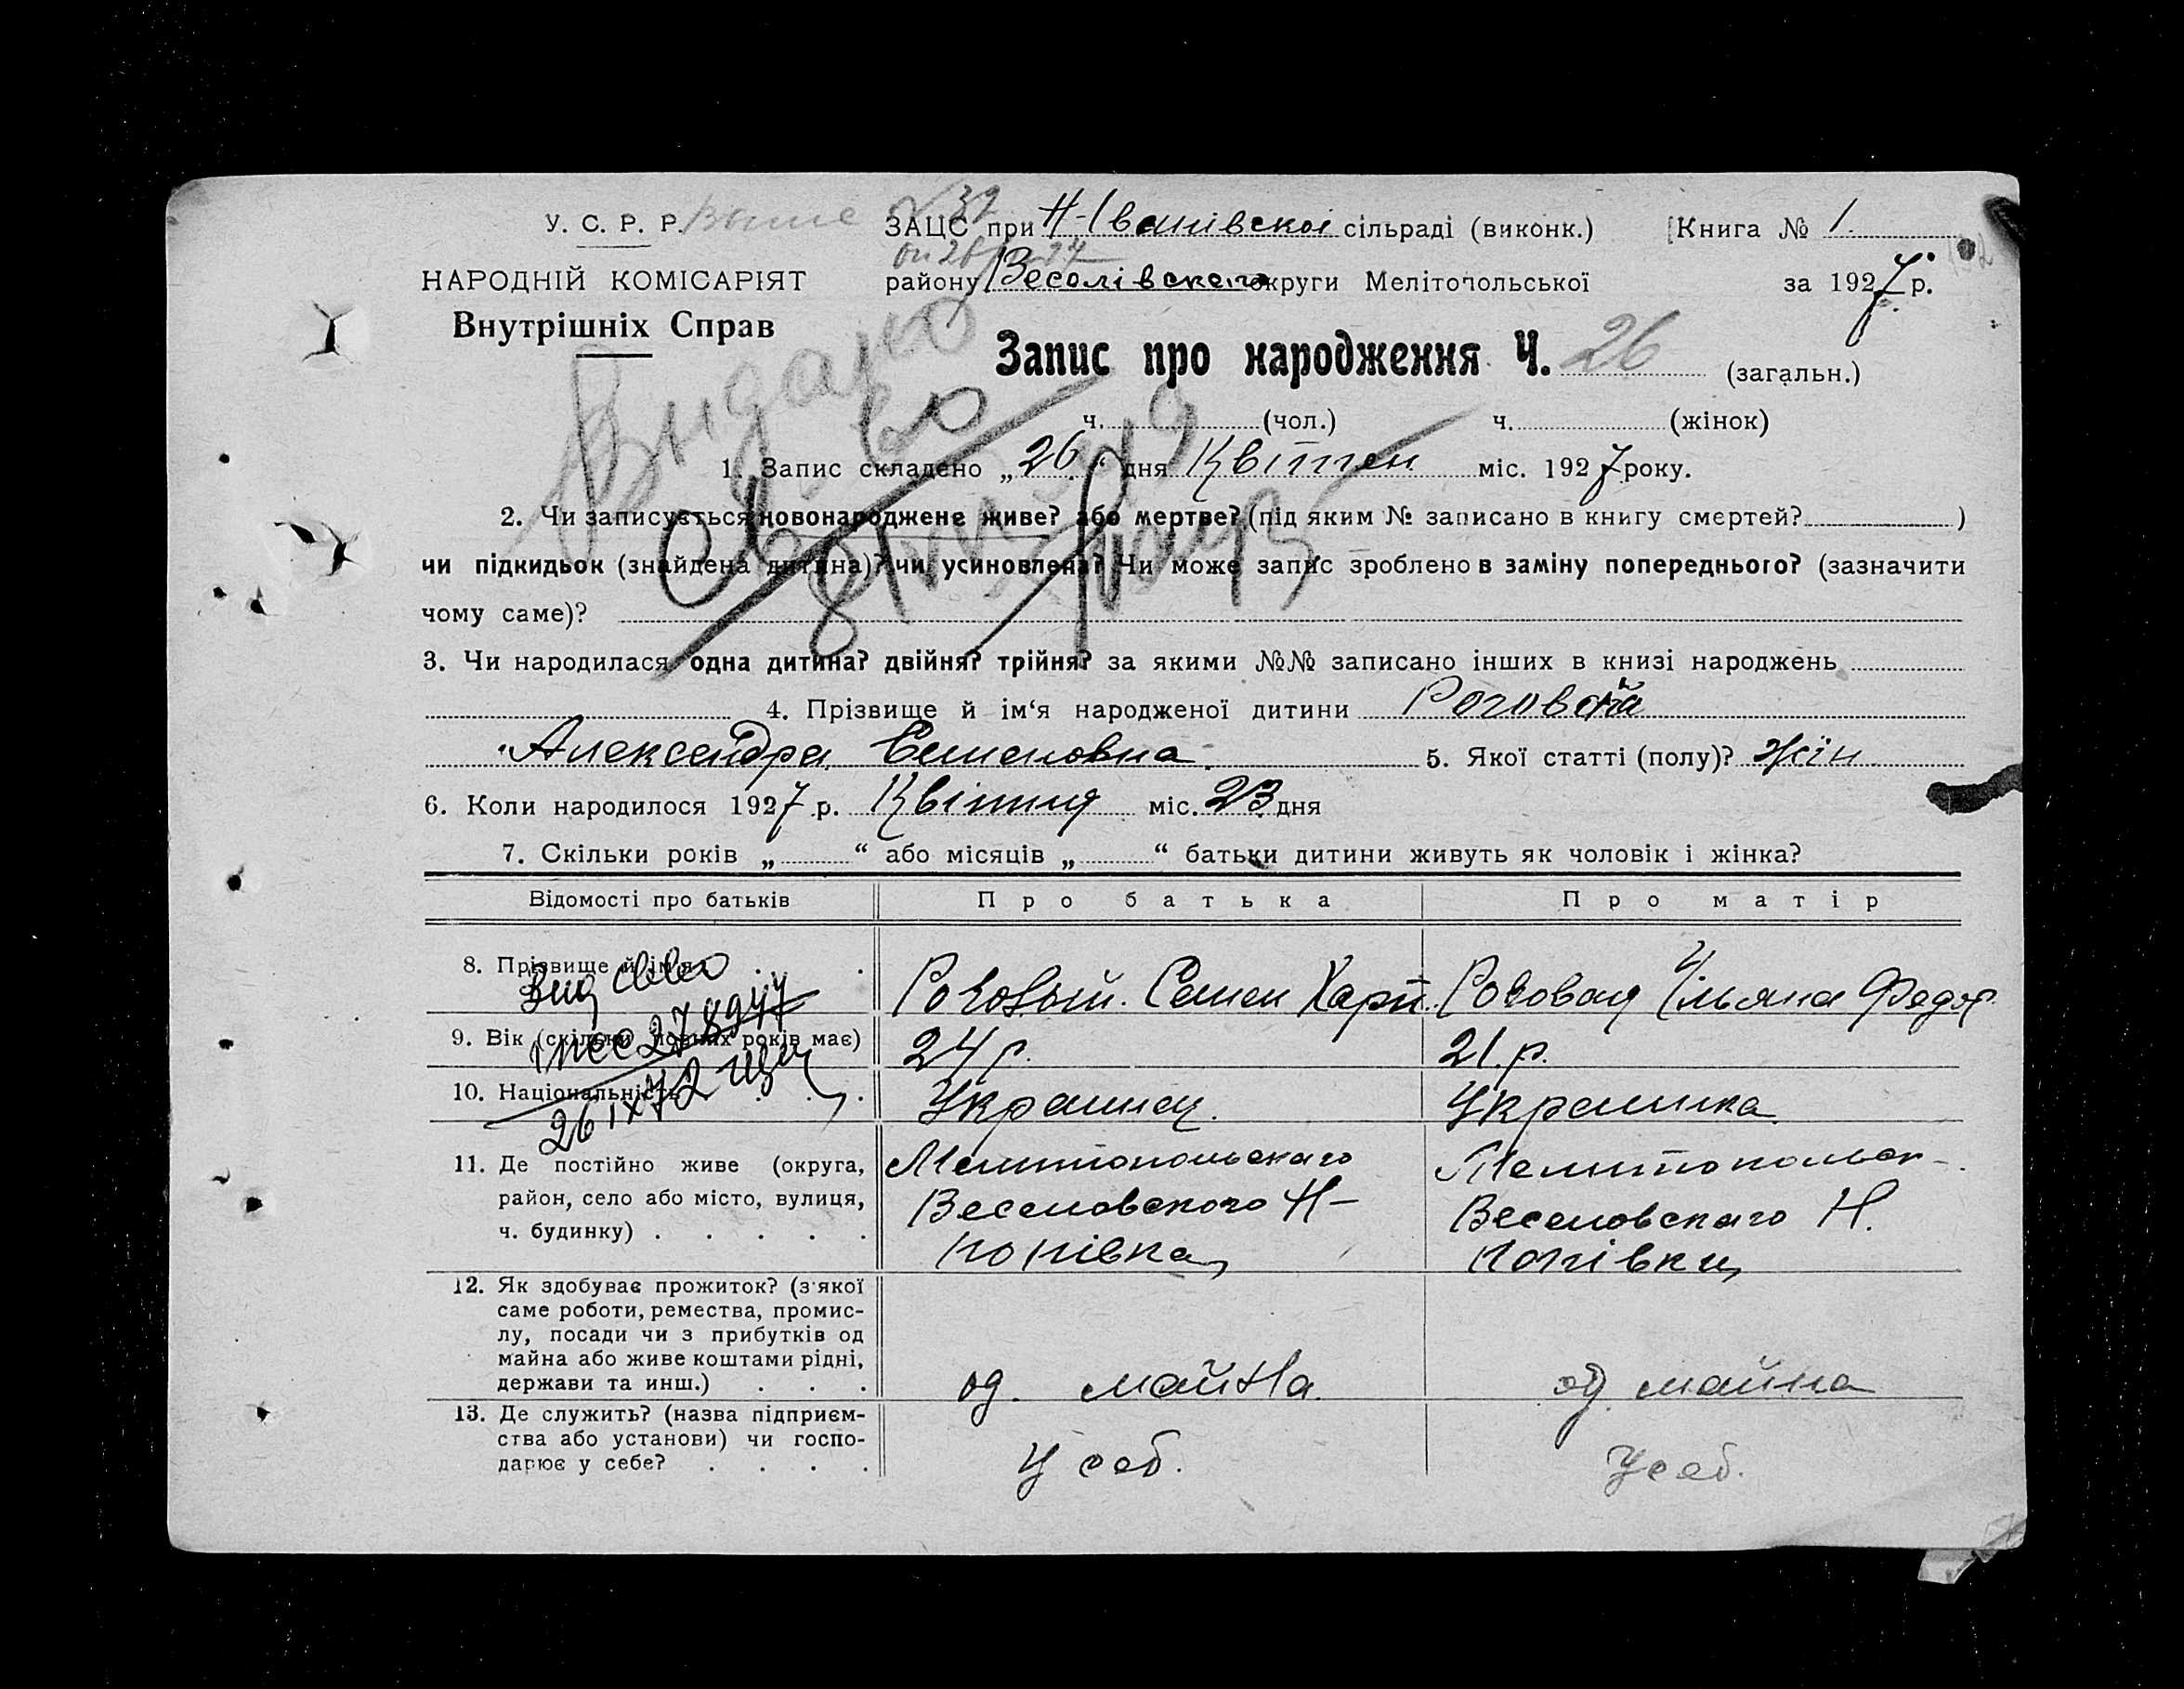 У. С. Р. Р.
ЗАЦС при Н-Іванівскої сільраді (виконк.) Книга № 1.
НАРОДНІЙ КОМІСАРІЯТ
району Веселівского округи Мелітопольської за 1927 р.
Внутрішніх Справ
Запис про народження Ч. 26 (загальн.)
Видано
ч. (чол.) ч. (жінок)
1. Запис складено „26“ дня Квітен міс. 1927 року.
2. Чи записується новонароджене живе? або мертве? (під яким № записано в книгу смертей? )
чи підкидьок (знайдена дитина)? чи усиновлена? Чи може запис зроблено в заміну попереднього? (зазначити
чому саме)?
3. Чи народилася одна дитина? двійня? трійня? за якими №№ записано інших в книзі народжень
4. Прізвище й ім‘я народженої дитини
Александра Семеновна 5. Якої статті (полу)? жін
6. Коли народилося 1927 р. Квітня міс. 23 дня
7. Скільки років „ “ або місяців „ “ батьки дитини живуть як чоловік і жінка?
Відомості про батьків Про батька Про матір
8. Прізвище й ім'я . . Роговый Семен Харит. Роговая Ульяна Федор.
9. Вік (скільки повних років має) 24 р. 21. р.
10. Національність . . . Украинец. Украинка
26 IX 72
11. Де постійно живе (округа, Мелитопольскаго Мелитопольск-
район, село або місто, вулиця, Веселовского Н- Веселовскаго Н.
ч. будинку) . . . . .
12. Як здобуває прожиток? (з'якої
саме роботи, ремества, промис-
лу, посади чи з прибутків од
майна або живе коштами рідні,
держави та инш.) . . . од. майна од майна
13. Де служить? (назва підприєм-
ства або установи) чи госпо-
дарює у себе? . . . . У себ. У себ.